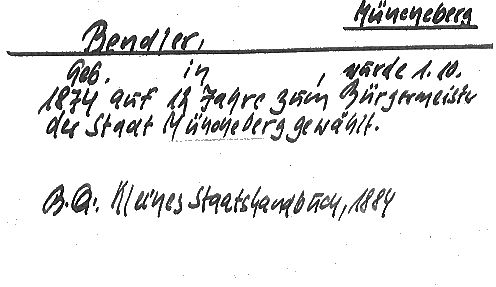 Müncheberg
Bendler,
Geb. in , wurde 1.10.
1874 auf 12 Jahre zum Bürgermeister
der Stadt Müncheberg gewählt.
B.A: Kleines Staatshandbuch, 1884